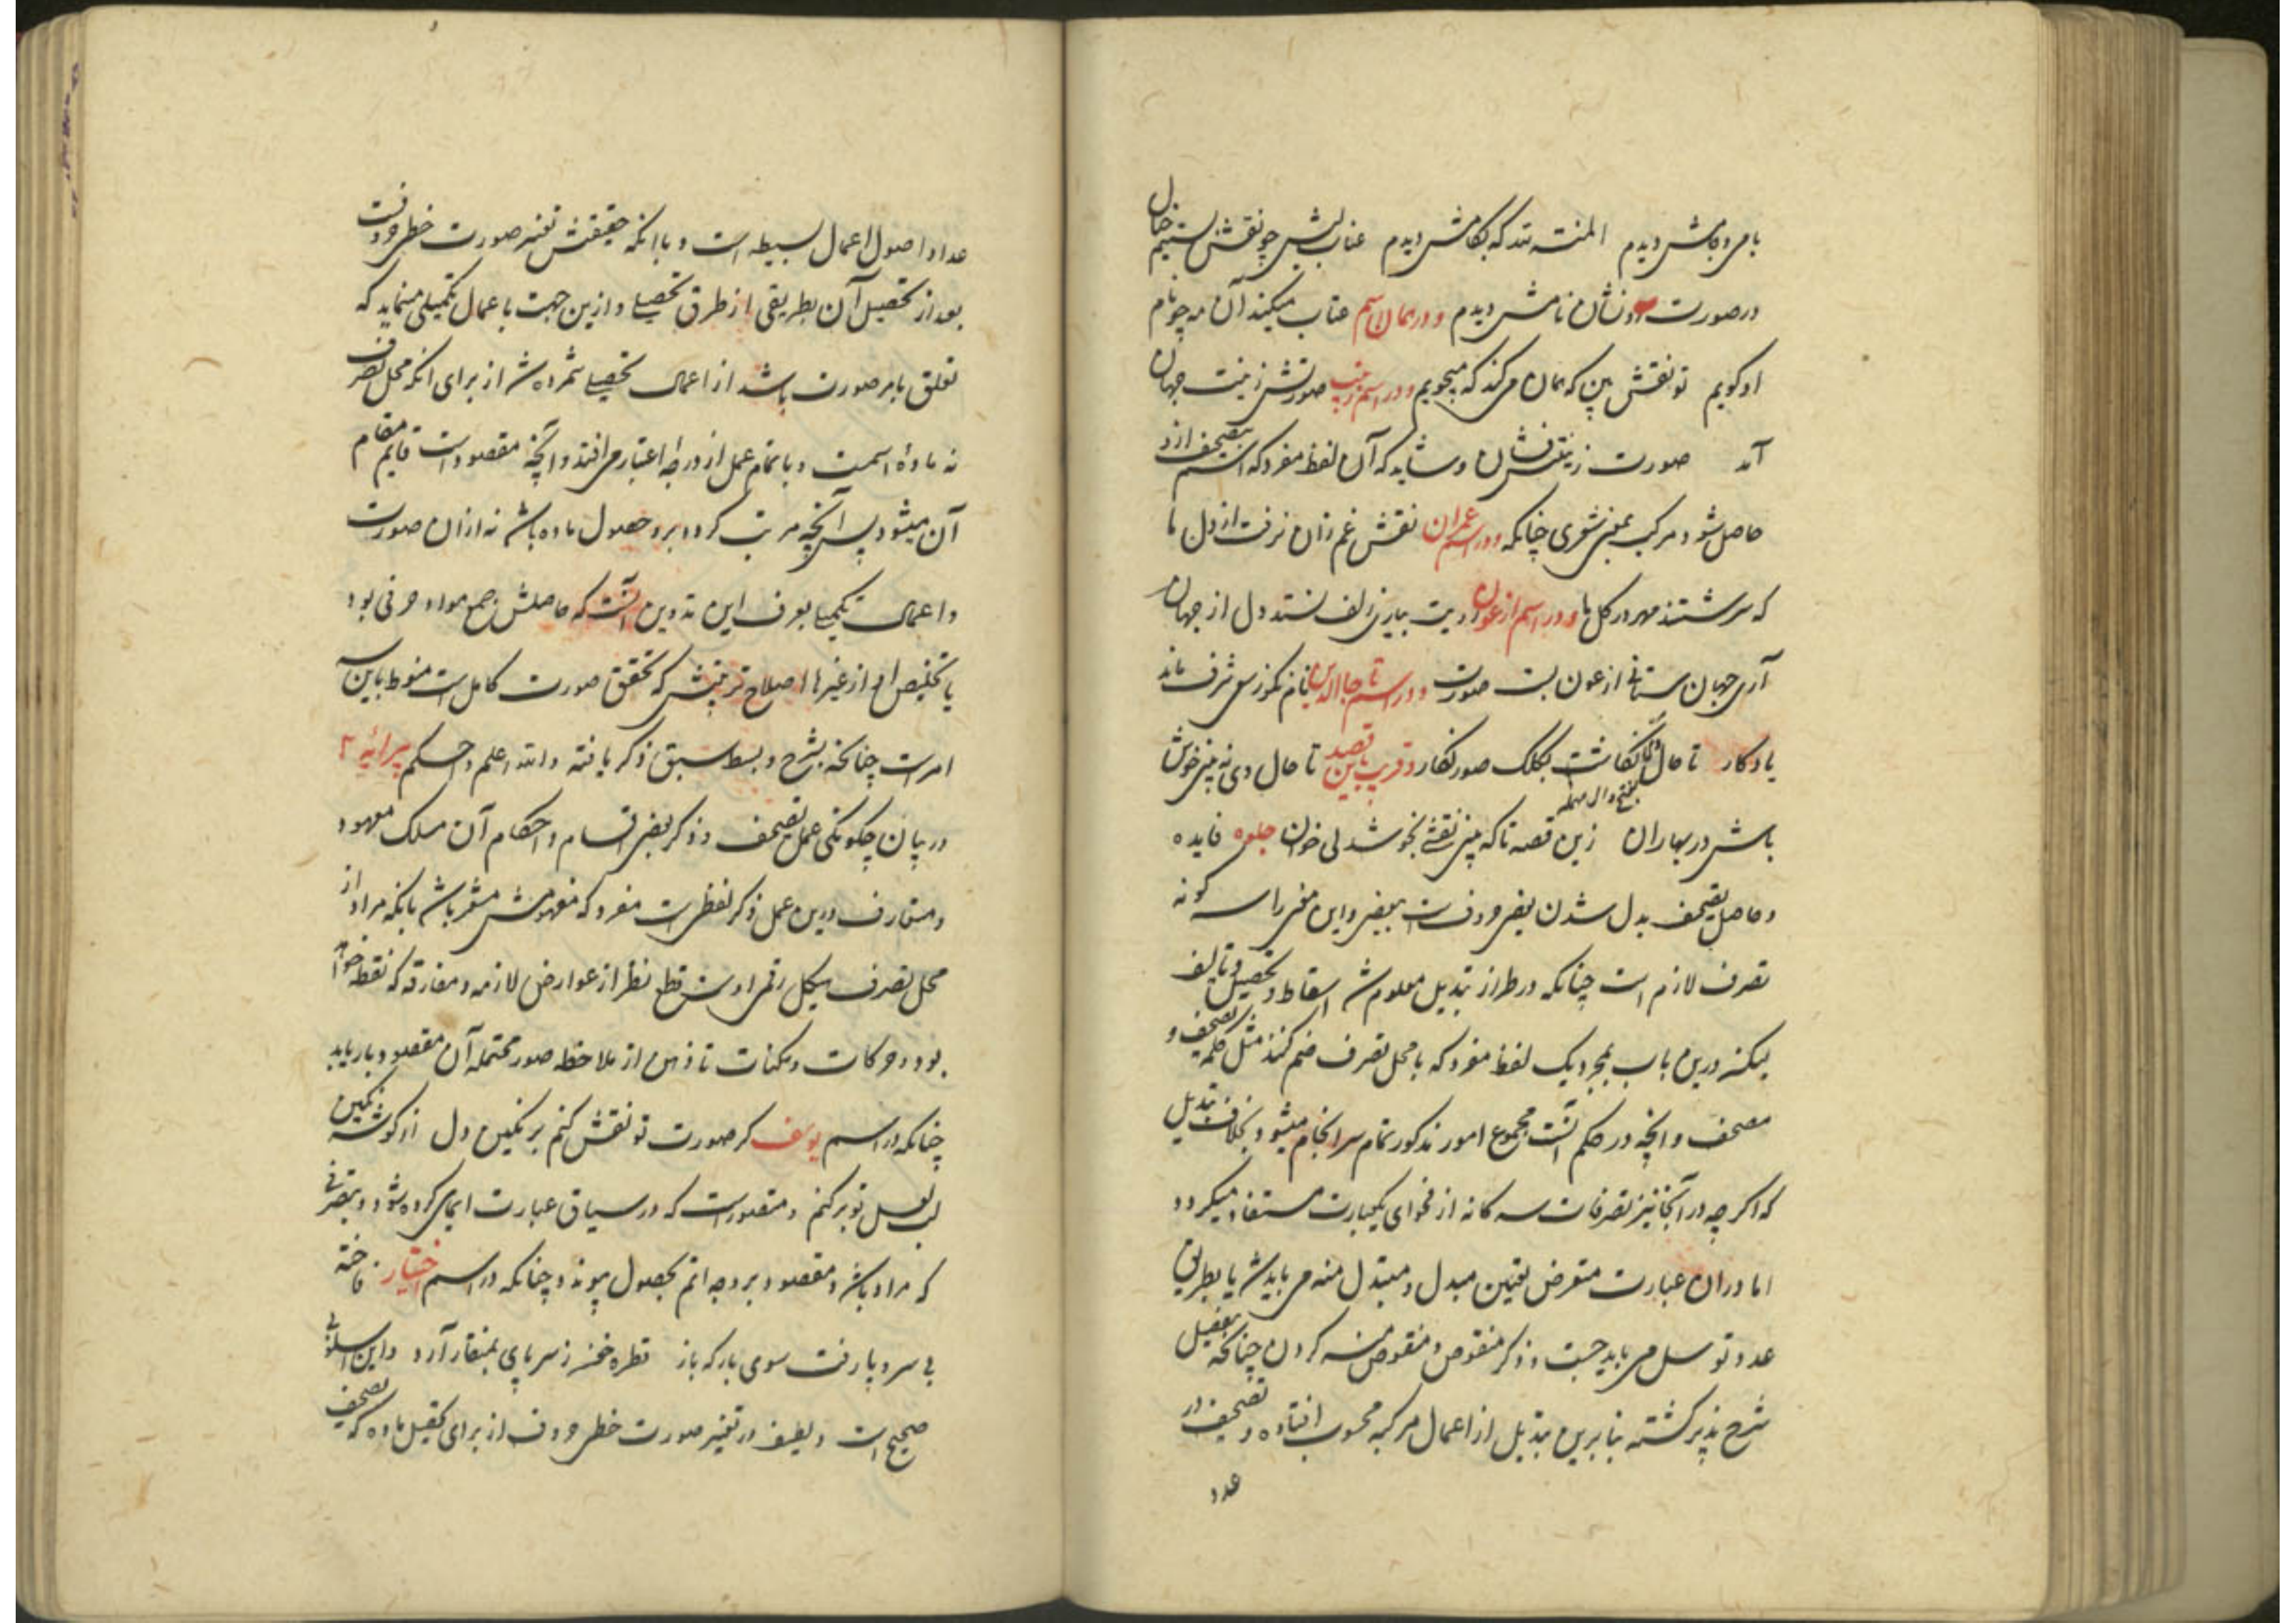 بامی و کامش دیدم المنته لله که بکامش دیدم عناب لبش چو نقش بستیم خیال
در صورت او نشان نامش دیدم و در همان اسم عتاب میکند آن مه چو نام
او کویم تو نقش بین که همان می کند که میجویم و در اسم صورتش زینت جهان
آمد صورت زینتش نشان و شاید که آن لفظ مفرد که تصحیف ازو
حاصل شود مرکب بمعنی شعری چنانکه و در اسم عمران نقش غم زان نرفت از دل ما
که سرشتند مهر در کل ما و در اسم ازعون زلف بستد دل از جهان
آری جهان ستانی از عون بست صورت و در اسم تاج الدین شرف ماند
یادکار تا حال نکاشت بکلک صور نکار و قریب باین قصد تا حال دی نه بینی خوش
بفتح دال مهمله
باش در بهاران زین قصه تا که بینی نقشی بخوشدلی خوان جلوه فایده
و حاصل تصحیف بدل شدن بعضی حروفست ببعضی و این معنی را سه کونه
تصرف لازم است چنانکه در طرز تبدیل معلوم شد اسقاط و تحصیل و تالیف
لیکن درین باب بمجرد یک لفظ مفرد که با محل تصرف ضم کنند مثل کلمه تصحیف و
مصحف و آنچه در حکم آنست مجموع امور مذکور تمام سرانجام میشود بخلاف تبدیل
که اکر چه در آنجا نیز تصرفات سه کانه از فحوای یکعبارت مستفاد میکردد
اما در ان عبارت متعرض تعیین مبدل و مبتدل منه می باید شد یا بطریق
عدد توسل می باید جست و ذکر منقوص و منقوص منه کردن چنانکه بتفصیل
شرح پذیر کشته بنا برین تبدیل از اعمال مرکبه محسوب افتاده و تصحیف در
عدد
عداد اصول اعمال بسیطه است و با آنکه حقیقتش تغییر صورت خطی حروفست
بعد از تحصیل آن بطریقی از طرق تحصیلی و ازین جهت با عمال تکمیلی مینماید که
تعلق بامر صورت باشد از اعمال تحصیلی شمرده شد از برای آنکه محل تصرف
نه ماده اسمست و با تمام عمل از درجه اعتبار می افتد و آنچه مقصودست قایم مقام
آن میشود پس آنچه مرتب کردد برو حصول ماده باشد نه از ان صورت
و اعمال تکمیلی بعرف این تدوین آنست که حاصلش جمع مواد حرفی بود
یا تخلیص او از غیرها اصلاح ترتیبش که تحقق صورت کامل است منوط باین سه
امرست چنانکه بشرح و بسط سبق ذکر یافته والله اعلم و احکم پیرایه ۲
در بیان چکونکی عمل تصحیف و ذکر بعضی اقسام و احکام آن مسلک معهود
و متعارف درین عمل ذکر لفظیست مفرد که مفهومش مشعر باشد بآنکه مراد از
محل تصرف شکل رقمی اوست قطع نظر از عوارض لازمه و مفارقه که نقطه خواهد
بود و حرکات و سکنات تا ذهن از ملاحظه صور محتمله آن مقصود باز یابد
چنانکه در اسم یوسف کر صورت تو نقش کنم بر نکین دل از کوشه نکین
لب لعل تو بر کنم و مقصودست که در سیاق عبارت ایمای کرده شود و بتصرفی
که مراد باشد و مقصود بر وجه اتم بحصول پیوندد چنانکه در اسم اختیار فاخته
بی سر و پا رفت سوی بارکه باز قطره ز سر پای بمنقار آرد و این اسلوب
صحیح است و لطیف در تغییر صورت خطی حروف از برای تحصیل ماده که تصحیف